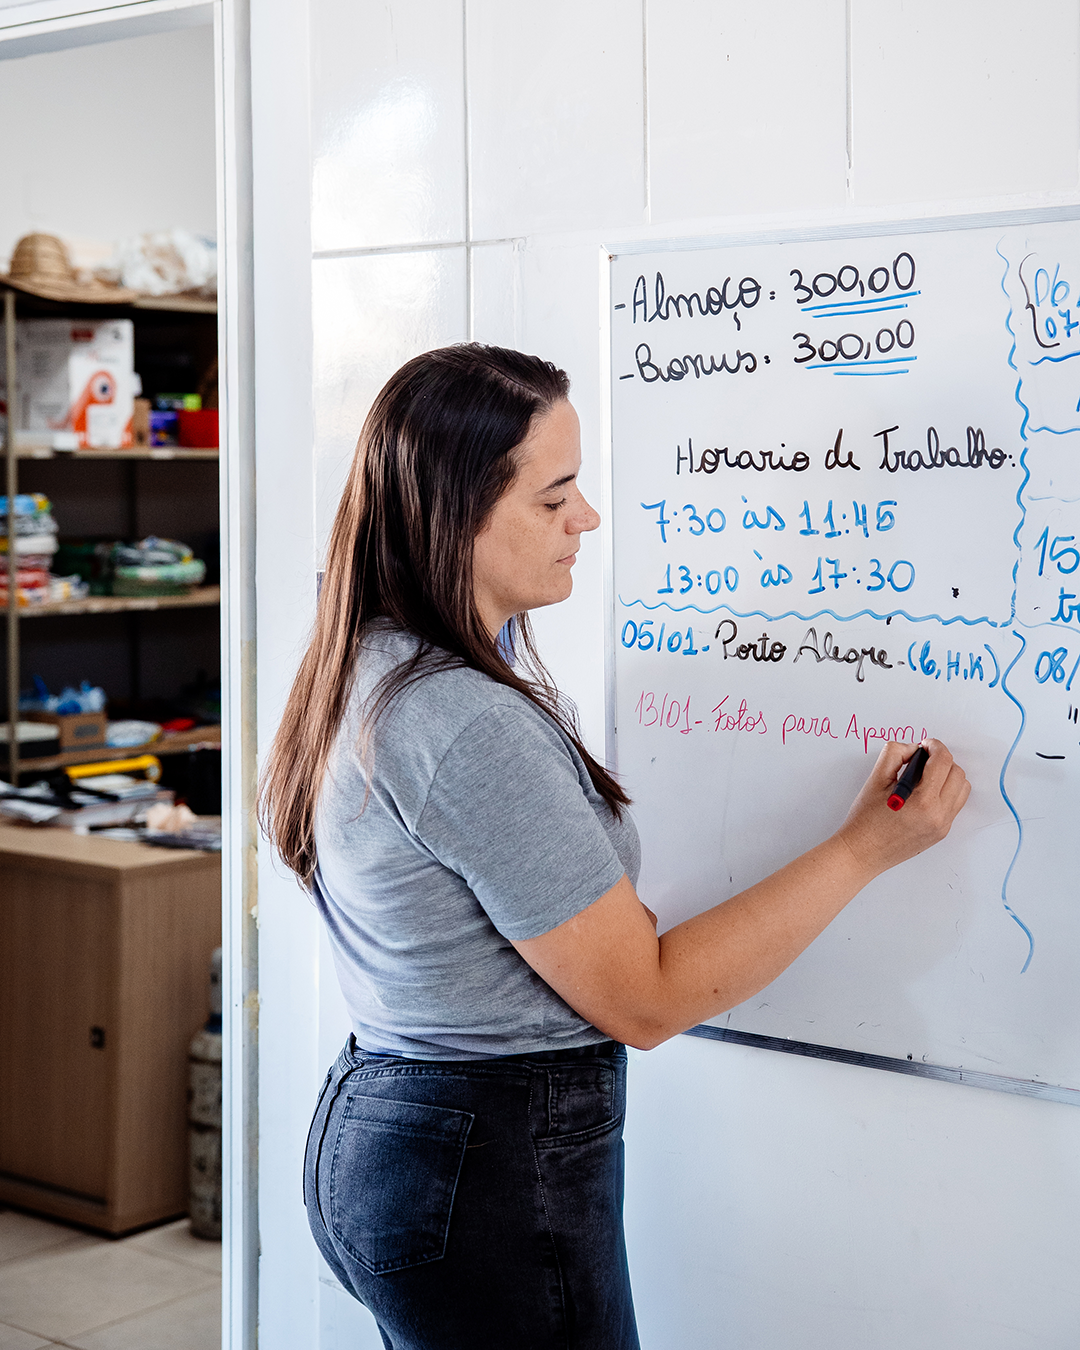 - Almoço: 300,00
- Bonus: 300,00
Horario de Trabalho:
7:30 às 11:45
13:00 às 17:30
05/01 - Porto Alegre - (G, H, K)
13/01 - Fotos para Apeme
06
07
15
08/